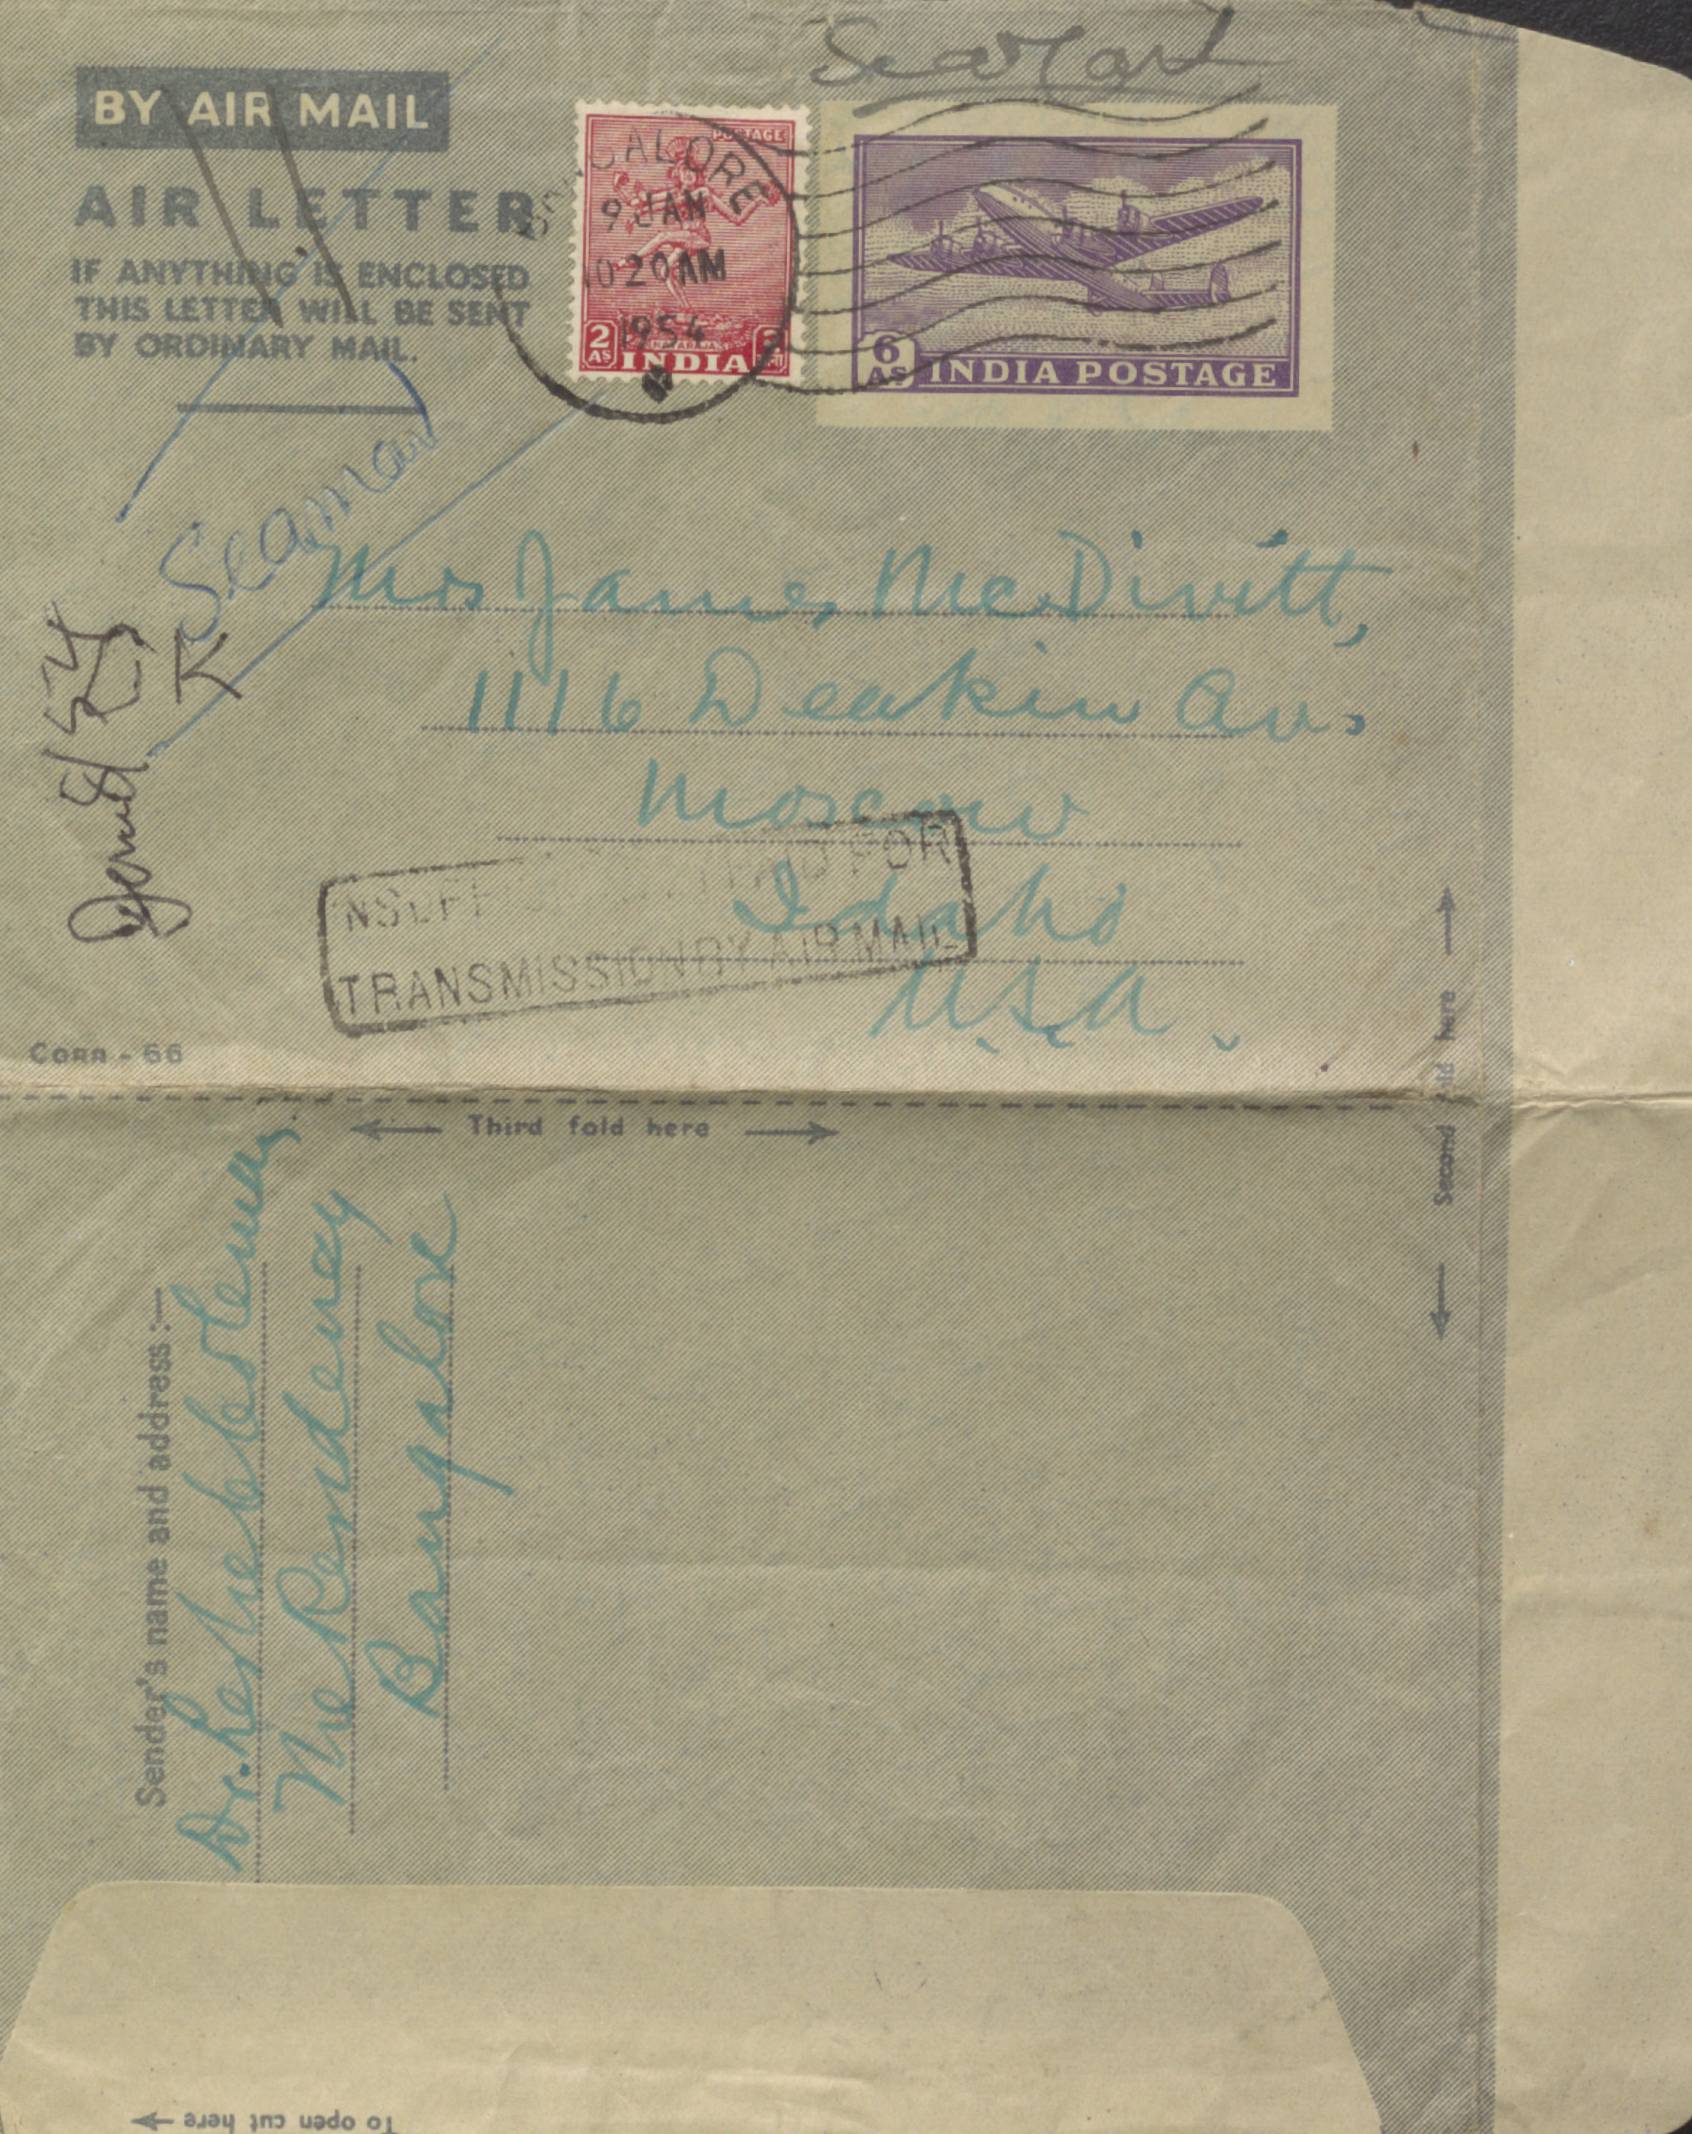 BY AIR MAIL
AIR LETTER
IF ANYTHING IS ENCLOSED
THIS LETTER WILL BE SENT
BY ORDINARY MAIL.
POSTAGE
2
AS
INDIA
9 JAN
10 20 AM
1954
6
AS
INDIA POSTAGE
Mrs James McDivitt,
1116 Deakin Av.
Moscow
Idaho
U.S.A.
FOR
TRANSMISSION BY AIR MAIL
CORR - 66
Third fold here
Second fold here
Sender's name and address :—
Dr. Leslie
Bangalore
To open cut here